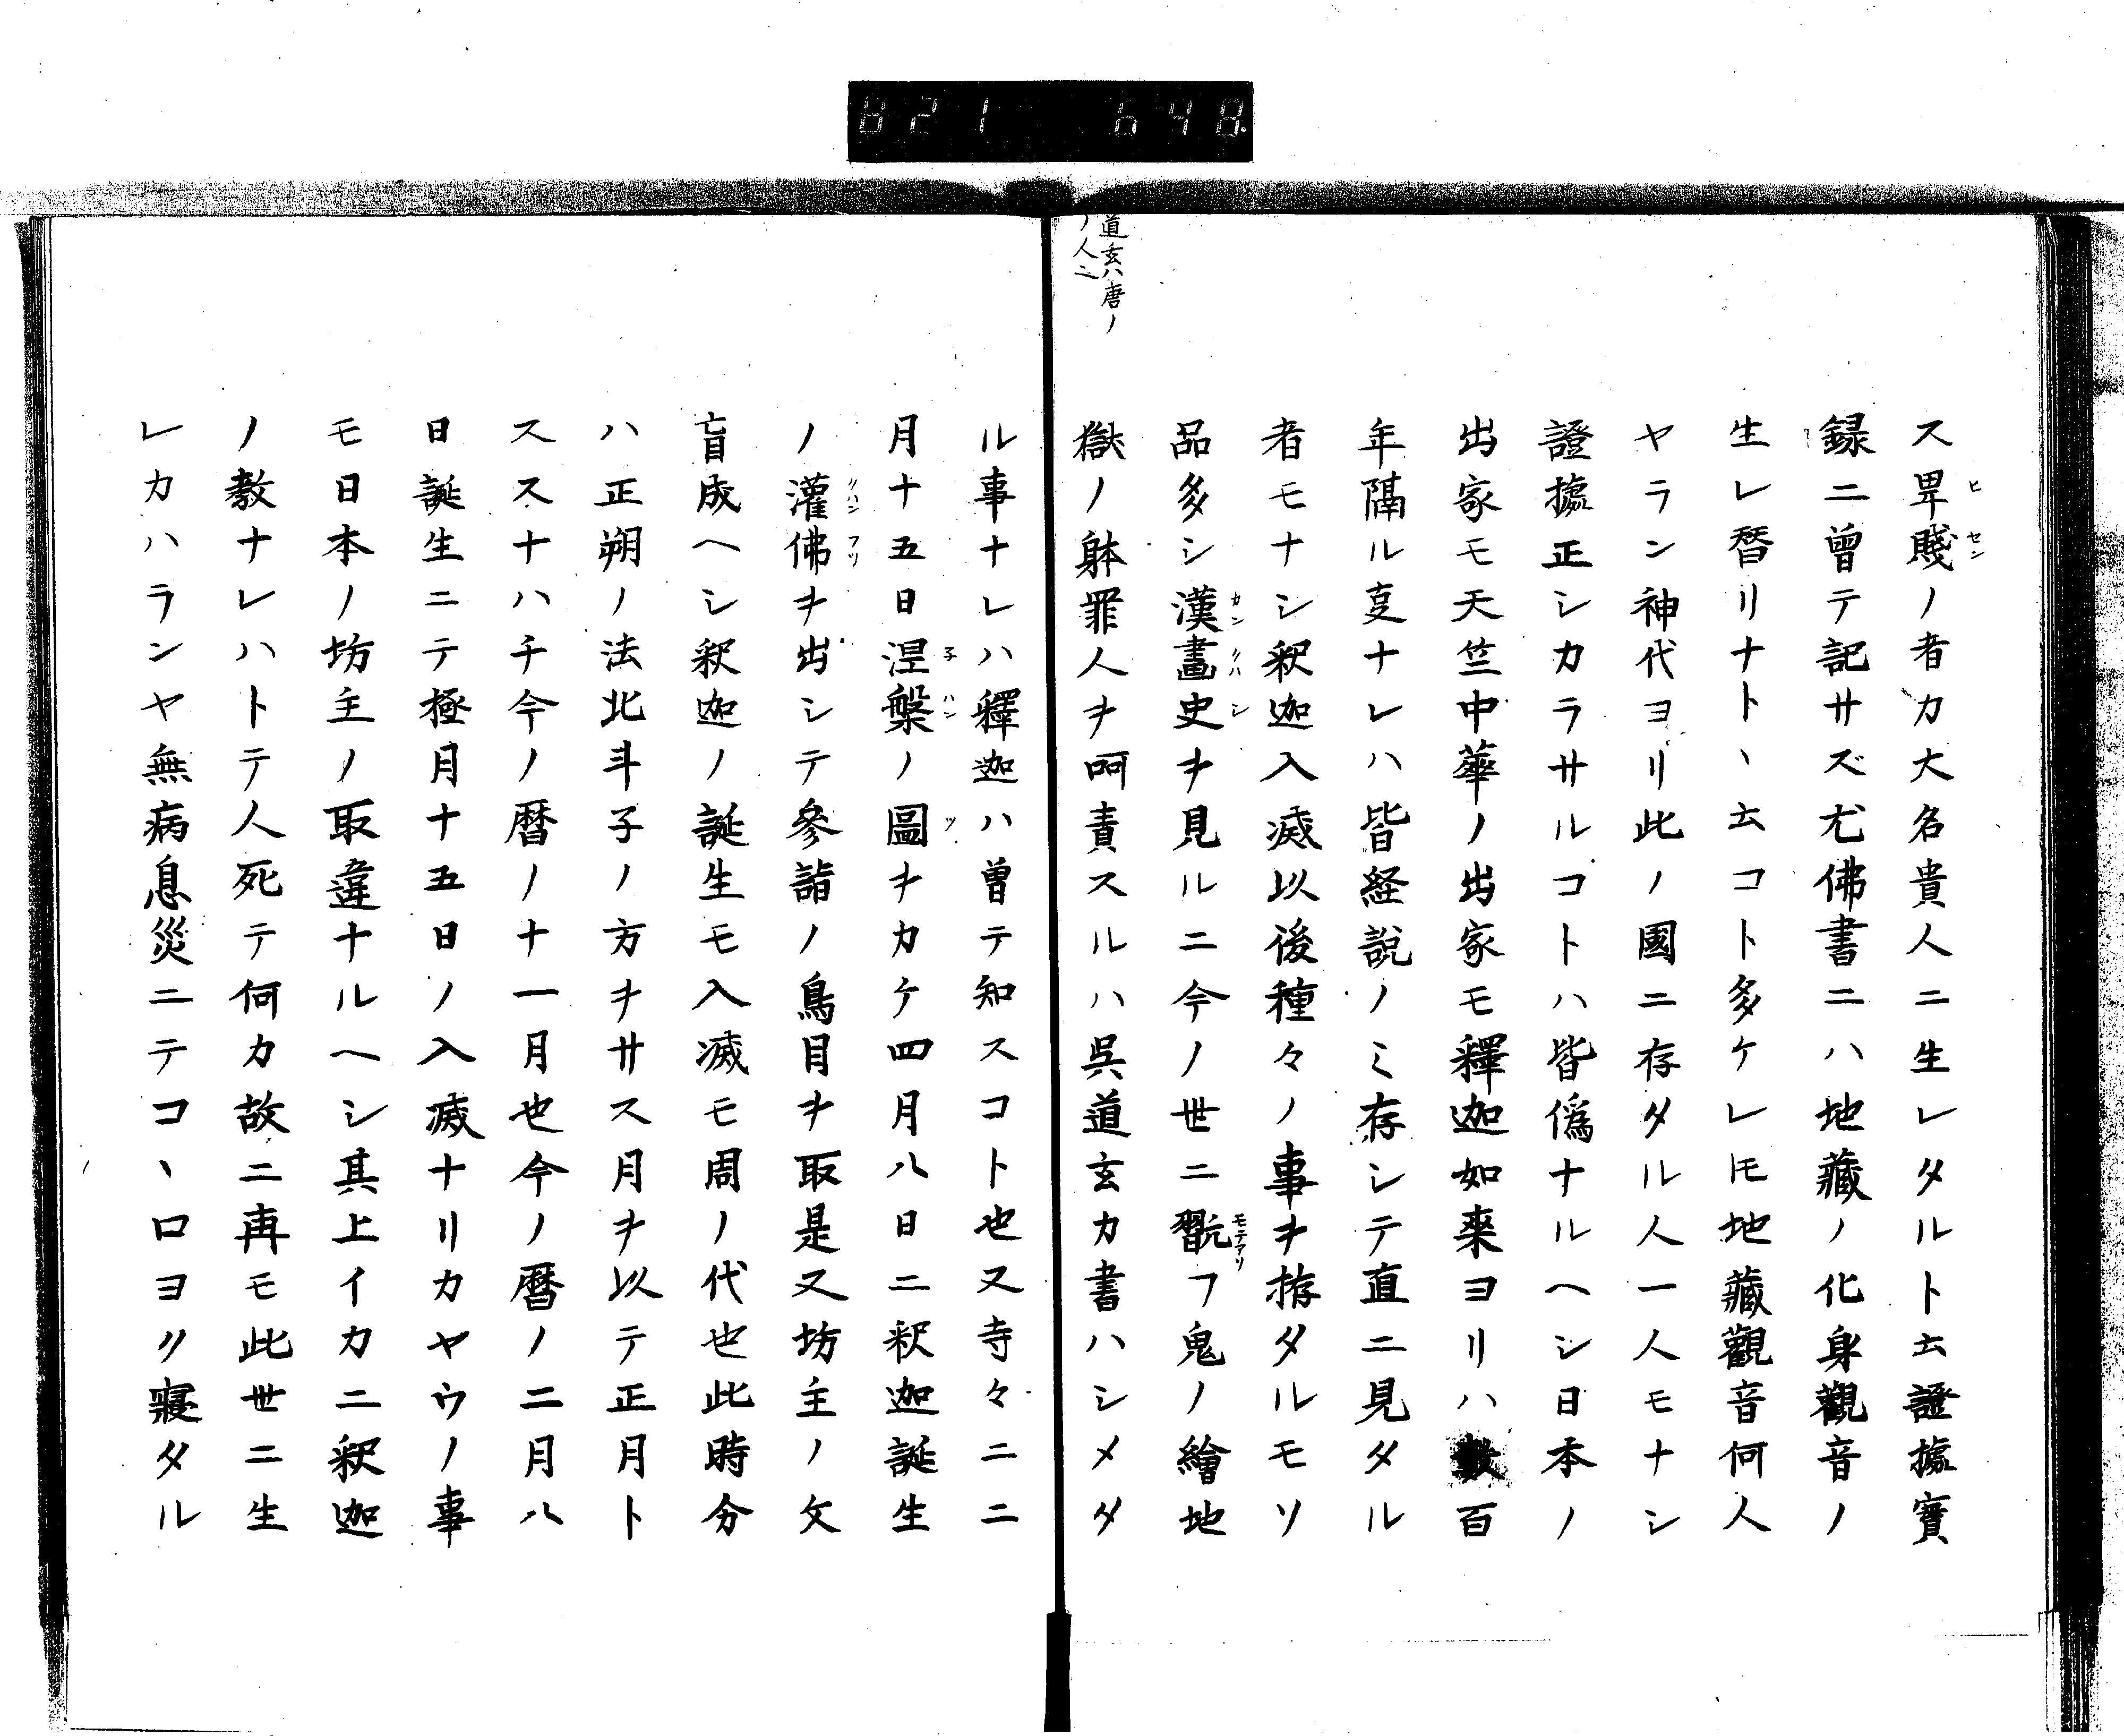 821 648
道玄ハ唐ノ
ノ人ニ
ス卑賤ノ者カ大名貴人ニ生レタルト云證據實
録ニ曽テ記サズ尤佛書ニハ地藏ノ化身觀音ノ
生レ替リナト丶云コト多ケレ𪜈地藏觀音何人
ヤラン神代ヨリ此ノ國ニ存タル人一人モナシ
證據正シカラサルコトハ皆僞ナルヘシ日本ノ
出家モ天竺中華ノ出家モ釋迦如来ヨリハ數百
年隔ル㕝ナレハ皆経説ノミ存シテ直ニ見タル
者モナシ釈迦入滅以後種々ノ事ヲ拵タルモソ
品多シ漢畫史ヲ見ルニ今ノ世ニ翫フ鬼ノ繪地
獄ノ躰罪人ヲ呵責スルハ呉道玄カ書ハシメタ
ル事ナレハ釋迦ハ曽テ知スコト也又寺々ニ二
月十五日涅槃ノ圖ヲカケ四月八日ニ釈迦誕生
ノ灌佛ヲ出シテ參詣ノ鳥目ヲ取是又坊主ノ文
盲成ヘシ釈迦ノ誕生モ入滅モ周ノ代也此時分
ハ正朔ノ法北斗子ノ方ヲサス月ヲ以テ正月ト
ススナハチ今ノ暦ノ十一月也今ノ暦ノ二月八
日誕生ニテ極月十五日ノ入滅ナリカヤウノ事
モ日本ノ坊主ノ取違ナルヘシ其上イカニ釈迦
ノ教ナレハトテ人死テ何カ故ニ再モ此世ニ生
レカハランヤ無病息災ニテコ丶ロヨク寢タル